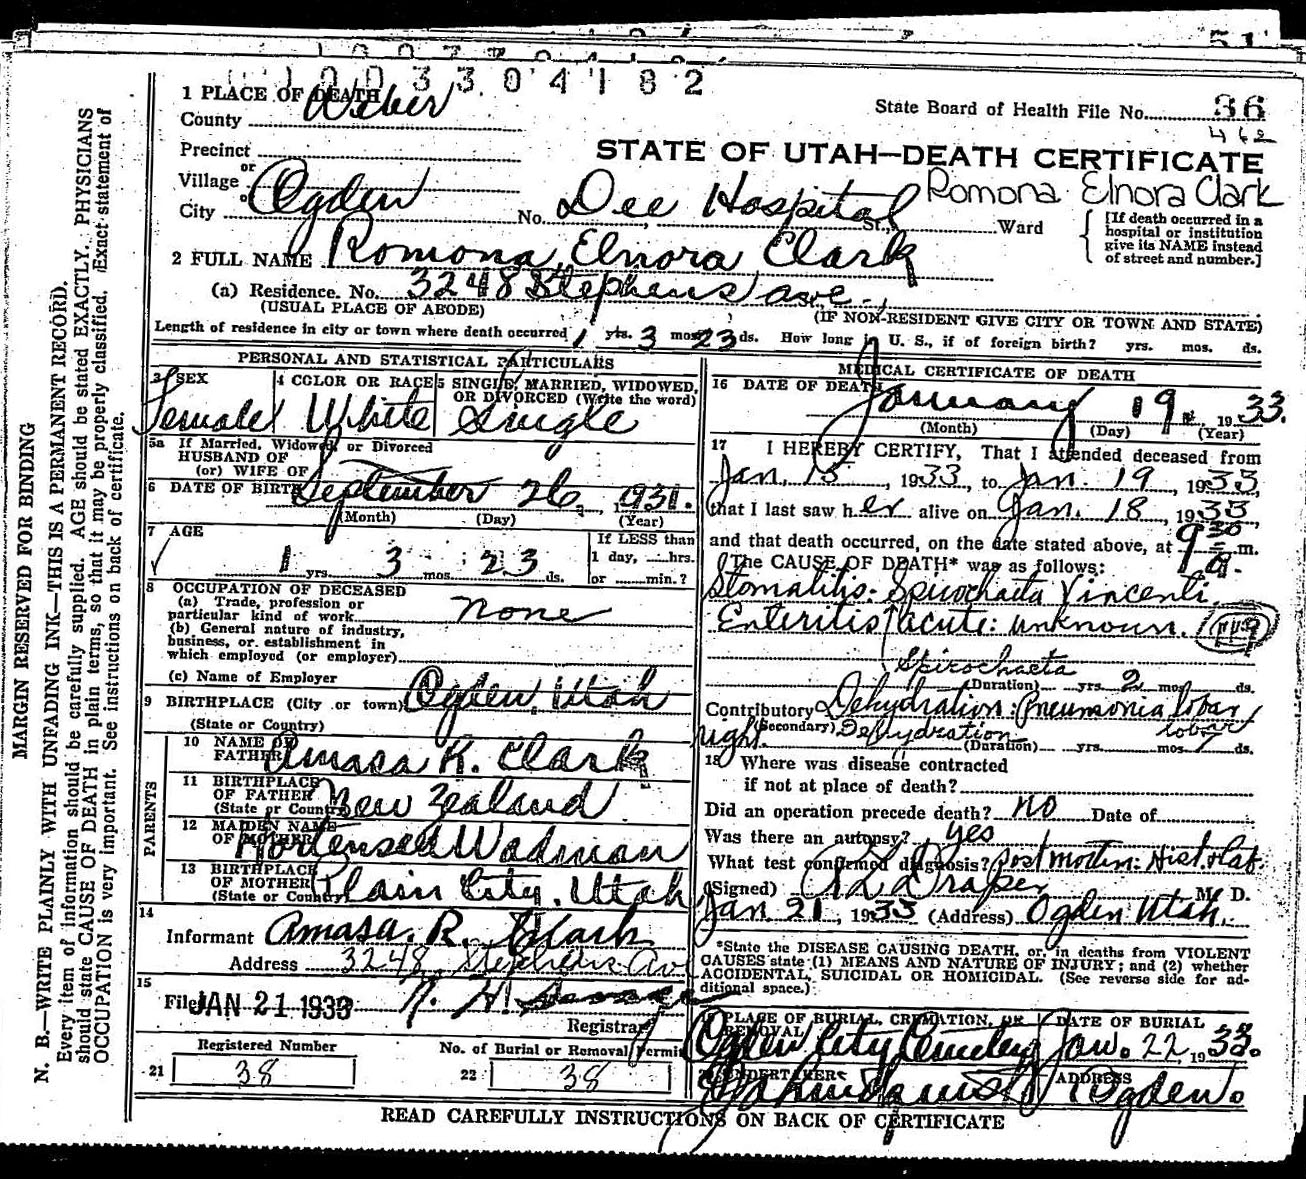 1003304182
1 PLACE OF DEATH
County Weber
State Board of Health File No. 36
462
Precinct
STATE OF UTAH—DEATH CERTIFICATE
or
Village
or
City Ogden No. Dee Hospital St., Ward
Romona Elnora Clark
[If death occurred in a hospital or institution give its NAME instead of street and number.]
2 FULL NAME Romona Elnora Clark
(a) Residence. No. 3248 Stephens ave.,
(USUAL PLACE OF ABODE) (IF NON-RESIDENT GIVE CITY OR TOWN AND STATE)
Length of residence in city or town where death occurred 1 yrs. 3 mos. 23 ds. How long in U. S., if of foreign birth? yrs. mos. ds.
PERSONAL AND STATISTICAL PARTICULARS
3 SEX 4 COLOR OR RACE 5 SINGLE, MARRIED, WIDOWED,
OR DIVORCED (Write the word)
Female White Single
5a If Married, Widowed, or Divorced
HUSBAND OF
(or) WIFE OF
6 DATE OF BIRTH September 26, 1931.
(Month) (Day) (Year)
7 AGE If LESS than
1 yrs. 3 mos. 23 ds. 1 day, hrs.
or min.?
8 OCCUPATION OF DECEASED
(a) Trade, profession or
particular kind of work none
(b) General nature of industry,
business, or establishment in
which employed (or employer)
(c) Name of Employer
9 BIRTHPLACE (City or town) Ogden, Utah
(State or Country)
PARENTS
10 NAME OF
FATHER Amasa R. Clark
11 BIRTHPLACE
OF FATHER New Zealand
(State or Country)
12 MAIDEN NAME
OF MOTHER Hortensea Wadman
13 BIRTHPLACE
OF MOTHER Plain City, Utah
(State or Country)
14
Informant Amasa. R. Clark
Address 3248 Stephens Av
15
Filed JAN 21 1933 N. H.
Registrar
Registered Number No. of Burial or Removal Permit
21 38 22 38
MEDICAL CERTIFICATE OF DEATH
16 DATE OF DEATH January 19 1933.
(Month) (Day) (Year)
17 I HEREBY CERTIFY, That I attended deceased from
Jan. 15, 1933, to Jan. 19, 1933,
that I last saw her alive on Jan. 18, 1933
and that death occurred, on the date stated above, at 9 30 a. m.
The CAUSE OF DEATH* was as follows:
Stomatitis: Spirochaeta Vincenti,
Enteritis, acute: unknown. 119
Spirochaeta
(Duration) yrs. 2 mos. ds.
Contributory Dehydration: Pneumonia lobar
right. (Secondary) Dehydration lobar
(Duration) yrs. mos. 7 ds.
18 Where was disease contracted
if not at place of death?
Did an operation precede death? no Date of
Was there an autopsy? yes
What test confirmed diagnosis? Postmortem: Hist. & Lab.
(Signed) Draper M. D.
Jan 21, 1933 (Address) Ogden Utah.
*State the DISEASE CAUSING DEATH, or, in deaths from VIOLENT
CAUSES state (1) MEANS AND NATURE OF INJURY; and (2) whether
ACCIDENTAL, SUICIDAL OR HOMICIDAL. (See reverse side for ad-
ditional space.)
19 PLACE OF BURIAL, CREMATION, OR REMOVAL DATE OF BURIAL
Ogden City Cemetery Jan. 22, 1933.
20 UNDERTAKER ADDRESS
Ogden.
READ CAREFULLY INSTRUCTIONS ON BACK OF CERTIFICATE
MARGIN RESERVED FOR BINDING
N. B.—WRITE PLAINLY WITH UNFADING INK—THIS IS A PERMANENT RECORD.
Every item of information should be carefully supplied. AGE should be stated EXACTLY. PHYSICIANS
should state CAUSE OF DEATH in plain terms, so that it may be properly classified. Exact statement of
OCCUPATION is very important. See instructions on back of certificate.